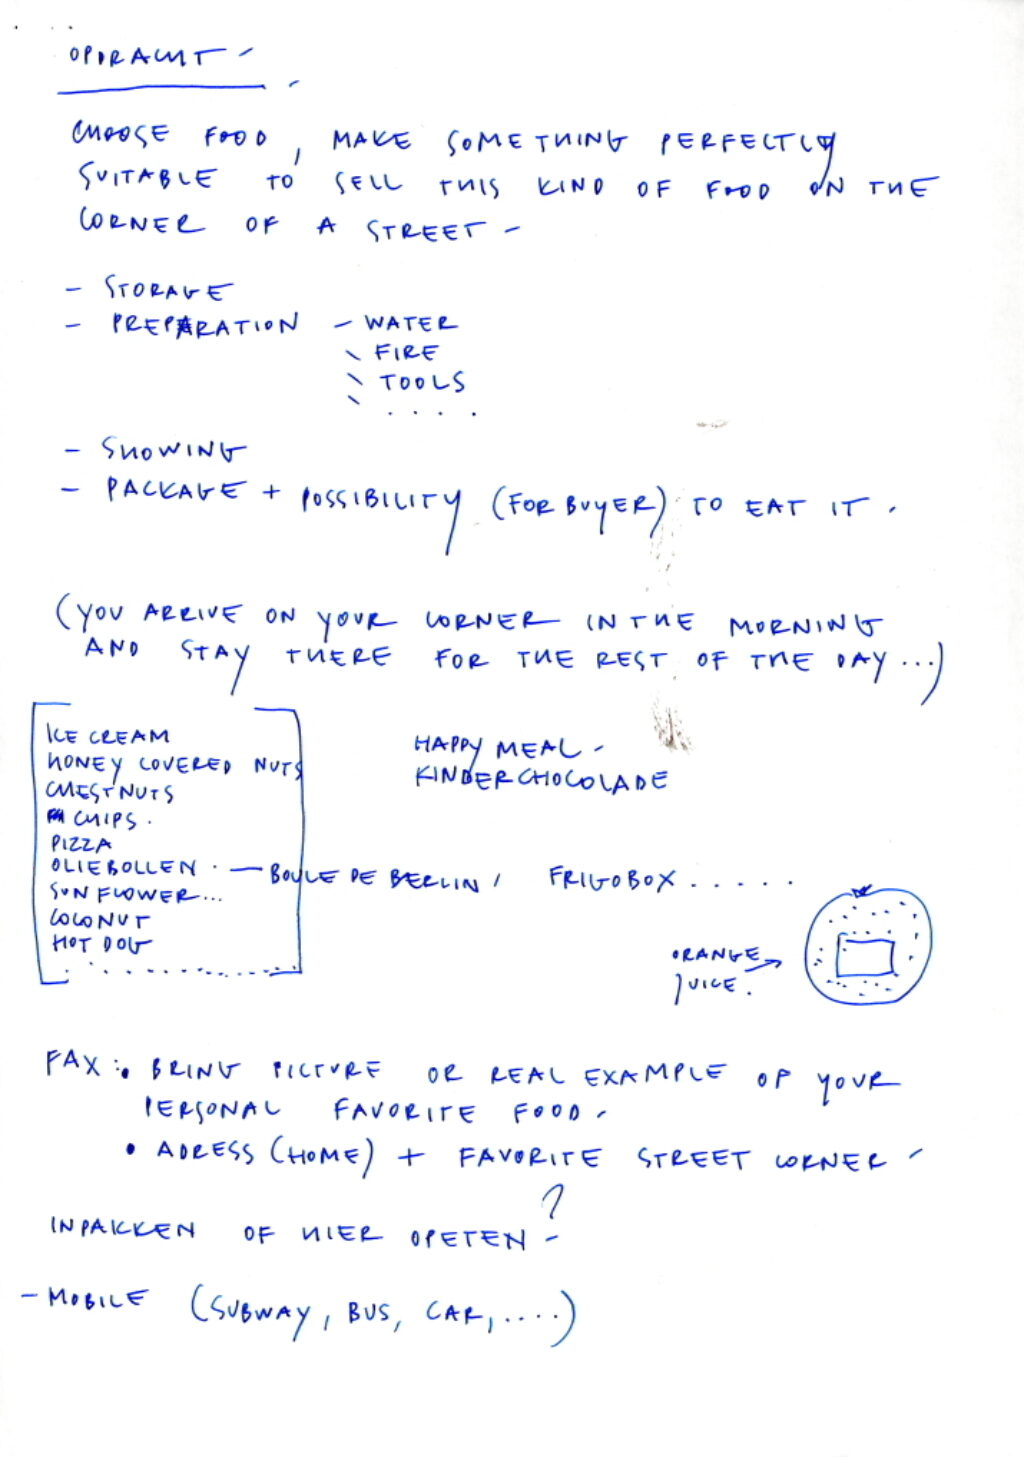 OPDRACHT -
CHOOSE FOOD, MAKE SOMETHING PERFECTLY
SUITABLE TO SELL THIS KIND OF FOOD ON THE
CORNER OF A STREET -
- STORAGE
- PREPARATION - WATER
\ FIRE
\ TOOLS
\ . . . .
- SHOWING
- PACKAGE + POSSIBILITY (FOR BUYER) TO EAT IT .
(YOU ARRIVE ON YOUR CORNER IN THE MORNING
AND STAY THERE FOR THE REST OF THE DAY ...)
ICE CREAM
HONEY COVERED NUTS
CHESTNUTS
CHIPS .
PIZZA
OLIEBOLLEN . — BOULE DE BERLIN /
SUNFLOWER ...
COCONUT
HOT DOG
. . . . . . . . . . . . .
HAPPY MEAL -
KINDERCHOCOLADE
FRIGOBOX . . . . .
ORANGE
JUICE .
FAX : • BRING PICTURE OR REAL EXAMPLE OF YOUR
PERSONAL FAVORITE FOOD .
• ADRESS (HOME) + FAVORITE STREET CORNER -
INPAKKEN OF HIER OPETEN ? -
- MOBILE (SUBWAY, BUS, CAR, ....)